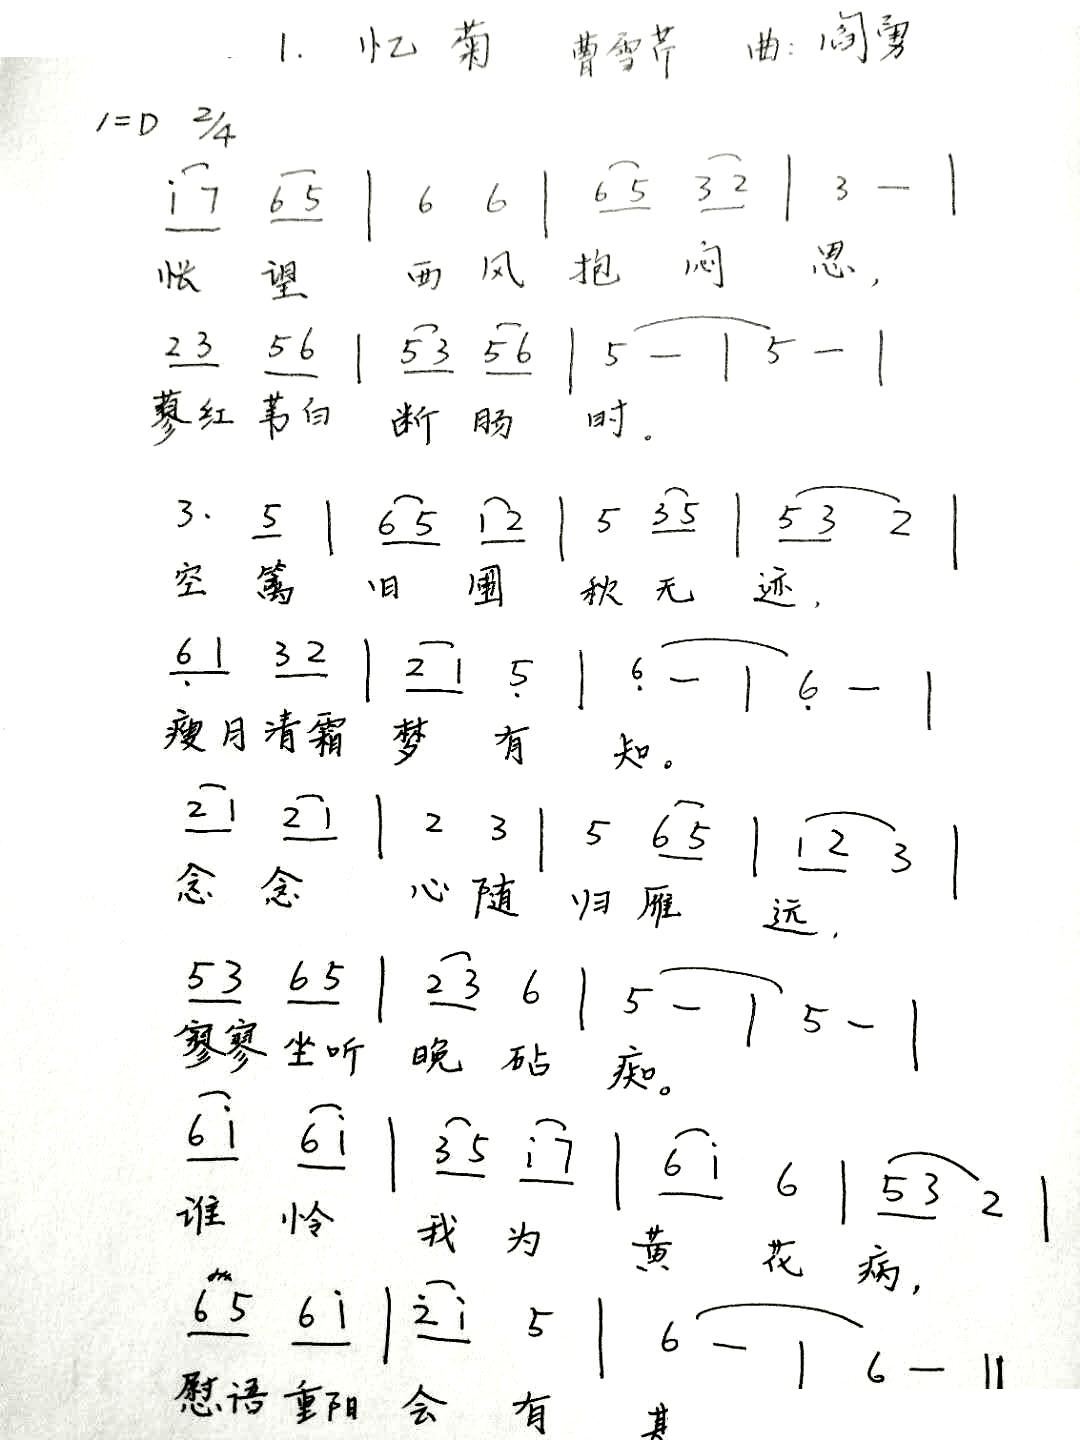 1. 忆菊 曹雪芹 曲:阎勇
1=D 2/4
i7 65 | 6 6 | 65 32 | 3 — |
怅望西风抱闷思,
23 56 | 53 56 | 5 — | 5 — |
蓼红苇白断肠时。
3. 5 | 65 i2 | 5 35 | 53 2 |
空篱旧圃秋无迹,
61 32 | 21 5 | 6 — | 6 — |
瘦月清霜梦有知。
21 21 | 2 3 | 5 65 | 12 3 |
念念心随归雁远,
53 65 | 23 6 | 5 — | 5 — |
寥寥坐听晚砧痴。
6i 6i | 35 i7 | 6i 6 | 53 2 |
谁怜我为黄花病,
65 6i | 2i 5 | 6 — | 6 — ||
慰语重阳会有